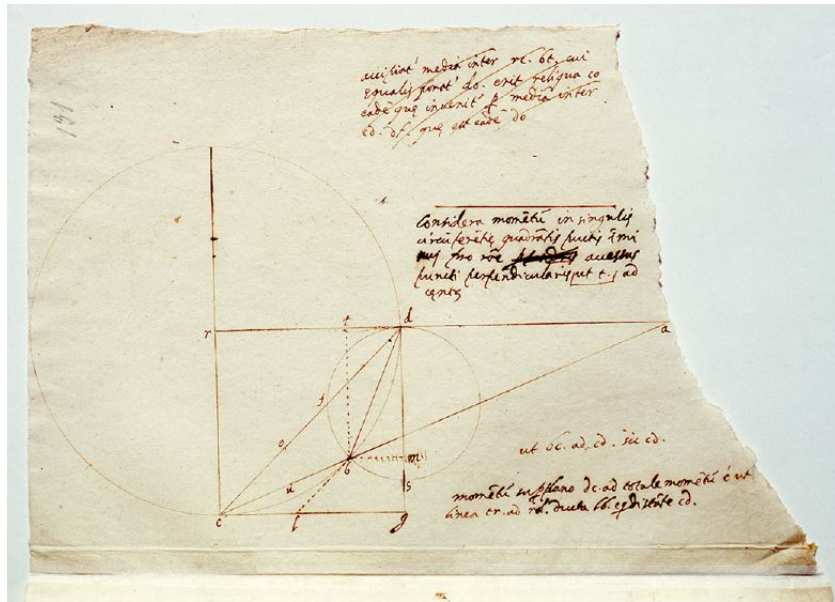 131
accipiat' media inter rc. bt. cui
equalis ponat' do. erit reliqua co
eadē quę invenit' media inter
cd. df. quę est eadē do
Considera momētū in singulis
circūferētię quadrātis punctis īmi
pro rōe accessus
puncti perpendicularis ut t. ad
centrū
r
t
d
a
f
o
b
m
u
s
c
l
g
ut bc. ad. cd. sic cd.
momētū sup plano dc. ad totale momētū ē ut
linea cr. ad rd. ducta bl. eqdistāte cd.